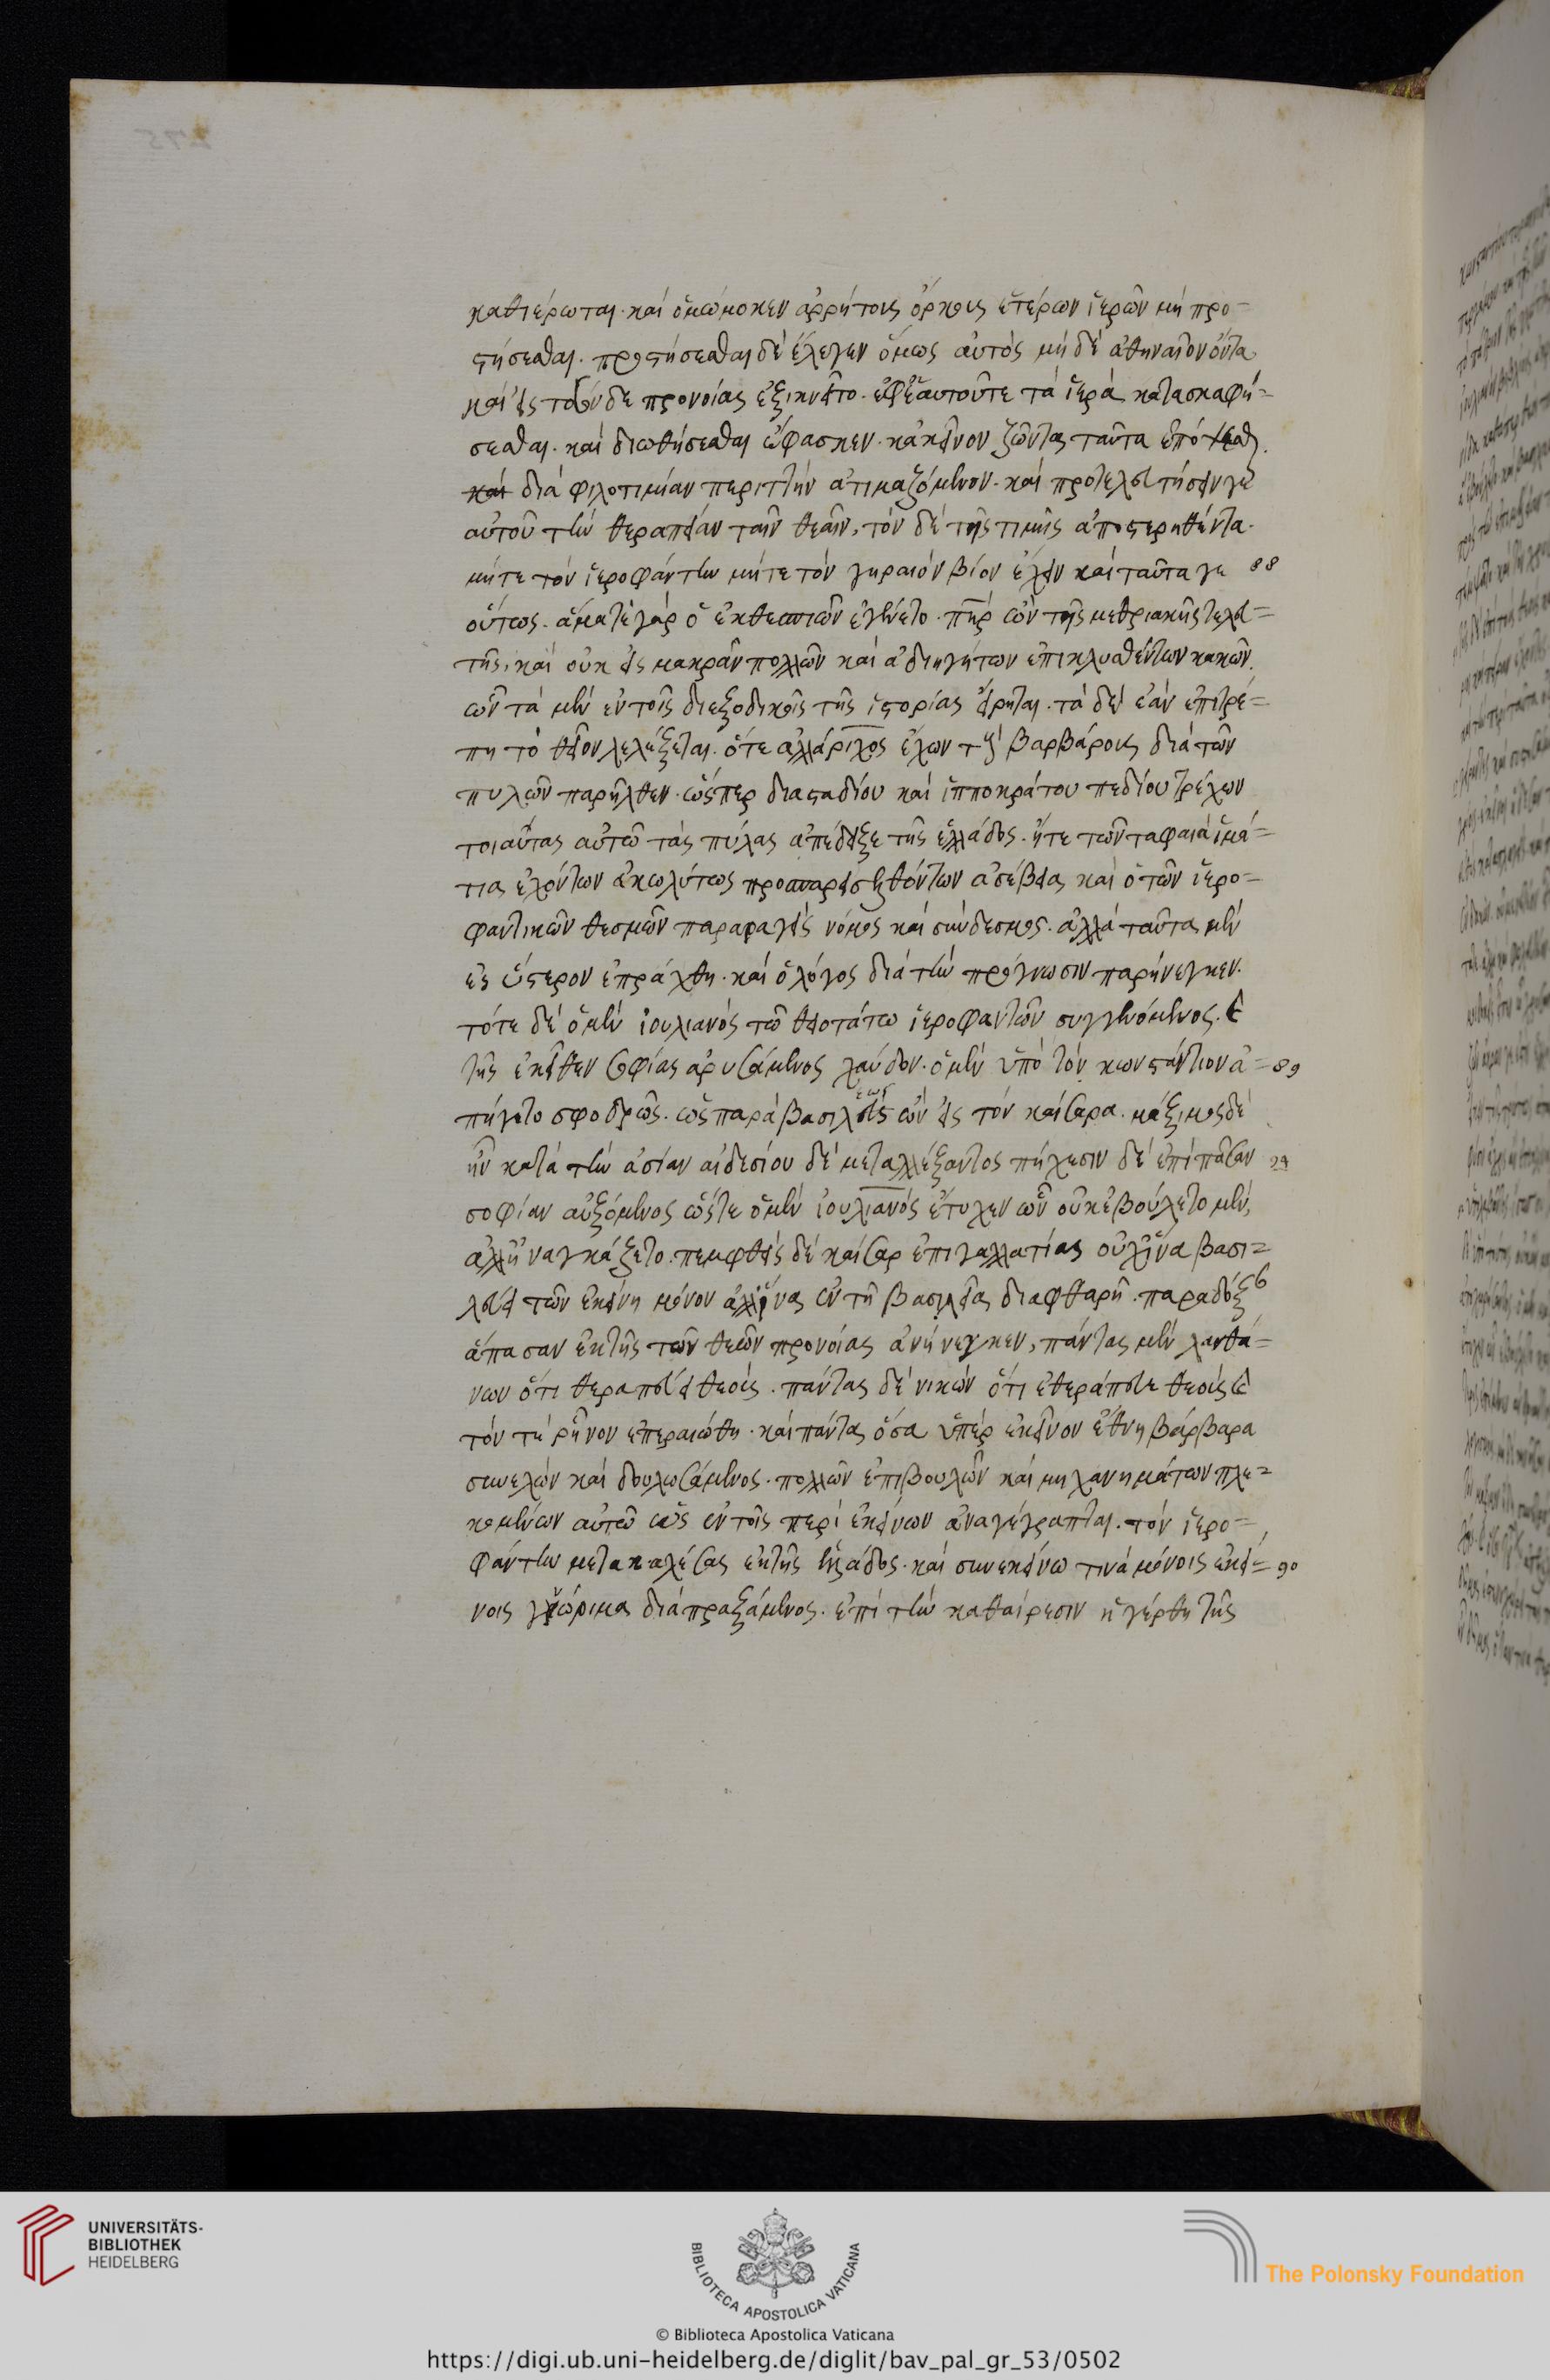 καθιέρωται· καὶ ὀμώμοκεν ἀρρήτοις ὅρκοις ἑτέρων ἱερῶν μὴ προ-
στήσεσθαι. προστήσεσθαι δὲ ἔλεγεν ὅμως αὐτὸς μὴ δὲ ἀθηναῖον ὄντα
καὶ εἰς τοσόνδε προνοίας ἐξικνεῖτο· ἐφ' ἑαυτοῦ τε τὰ ἱερὰ κατασκαφή-
σεσθαι· καὶ δῃωθήσεσθαι ἔφασκεν· κἀκεῖνον ζῶντα ταῦτα
διὰ φιλοτιμίαν περιττὴν ἀτιμαζόμενον· καὶ προτελευτήσειν γε
αὐτοῦ τὴν θεραπείαν ταῖν θεαῖν, τὸν δὲ τῆς τιμῆς ἀποστερηθέντα.
μήτε τὸν ἱεροφάντην μήτε τὸν γηραιὸν βίον ἔχειν καὶ ταῦτα γε 88
οὕτως. ἅμα τε γὰρ ὁ ἐκ θεσπιῶν ἐγένετο· πὴρ ὢν τῆς μεθριακῆς τελε=
τῆς, καὶ οὐκ εἰς μακρὰν πολλῶν καὶ ἀδιηγήτων ἐπικλυσθέντων κακῶν.
ὧν τὰ μὲν ἐν τοῖς διεξοδικοῖς τῆς ἱστορίας εἴρηται. τὰ δὲ ἐὰν ἐπιτρέ=
πη τὸ θεῖον λελέξεται. ὅτε ἀλλάριχος ἔχων τοὺς βαρβάρους διὰ τῶν
πυλῶν παρῆλθεν· ὥσπερ διὰ σταδίου καὶ ἱπποκράτου πεδίου τρέχων
τοιαύτας αὐτῷ τὰς πύλας ἀπέδειξε τῆς ἑλλάδος. ἥτε τῶν τὰ φαιὰ ἱμά=
τια ἐχόντων ἀκωλύτως προσπαρεισελθόντων ἀσέβεια καὶ ὁ τῶν ἱερο-
φαντικῶν θεσμῶν παραραγεὶς νόμος καὶ σύνδεσμος. ἀλλὰ ταῦτα μὲν
ἐς ὕστερον ἐπράχθη· καὶ ὁ λόγος διὰ τὴν πρόγνωσιν παρήνεγκεν.
τότε δὲ ὁ μὲν ἰουλιανὸς τῷ θειοτάτῳ ἱεροφαντῶν συγγενόμενος. καὶ
τῆς ἐκεῖθεν σοφίας ἀρυσάμενος χανδόν. ὁ μὲν ὑπὸ τὸν κωνστάντιον ἀ= 89
πήγετο σφοδρῶς. ὡς παρὰ βασιλεύς ὢν εἰς τὸν καίσαρα. μάξιμος δὲ
ἦν κατὰ τὴν ἀσίαν αἰδεσίου δὲ μεταλλέξαντος πήχεσιν δὲ ἐπὶ πᾶσαν 29
σοφίαν αὐξόμενος ὥστε ὁ μὲν ἰουλιανὸς ἔτυχεν ὧν οὐκ ἐβούλετο μὲν,
ἀλλ' ἠναγκάζετο. πεμφθεὶς δὲ καίσαρ ἐπὶ γαλλατίας οὐχ' ἵνα βασι=
λεύῃ τῶν ἐκείνῃ μόνον ἀλλ' ἵνα ἐν τῇ βασιλείᾳ διαφθαρῇ. παραδόξως
ἅπασαν ἐκ τῆς τῶν θεῶν προνοίας ἀνήνεγκεν, πάντας μὲν λανθά=
νων ὅτι θεραπεύει θεούς. πάντας δὲ νικῶν ὅτι ἐθεράπευε θεοὺς καὶ
τόν τε ῥῆνον ἐπεραιώθη· καὶ πάντα ὅσα ὑπὲρ ἐκεῖνον ἔθνη βάρβαρα
συνελὼν καὶ δουλωσάμενος. πολλῶν ἐπιβουλῶν καὶ μηχανημάτων πλε=
κομένων αὐτῷ ὡς ἐν τοῖς περὶ ἐκείνων ἀναγέγραπται. τὸν ἱερο-
φάντην μετακαλέσας ἐκ τῆς ἑλλάδος. καὶ σὺν ἐκείνῳ τινὰ μόνοις ἐκεί= 90
νοις γνώριμα διαπραξάμενος. ἐπὶ τὴν καθαίρεσιν ἠγέρθη τῆς
UNIVERSITÄTS-
BIBLIOTHEK
HEIDELBERG
BIBLIOTECA APOSTOLICA VATICANA
The Polonsky Foundation
© Biblioteca Apostolica Vaticana
https://digi.ub.uni-heidelberg.de/diglit/bav_pal_gr_53/0502